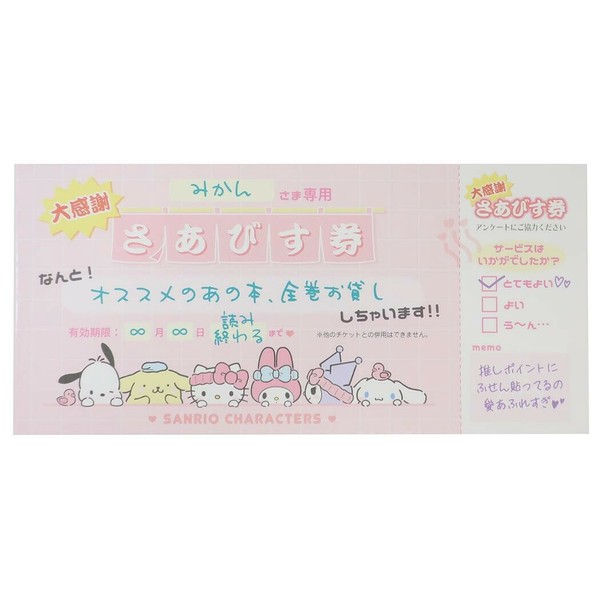 大感謝
みかん さま専用
さあびす券
なんと!
オススメのあの本、全巻お貸し
しちゃいます!!
有効期限: ∞ 月 ∞ 日 読み終わる まで♥
※他のチケットとの併用はできません。
♥ SANRIO CHARACTERS ♥
大感謝
さあびす券
アンケートにご協力ください
サービスは
いかがでしたか?
とてもよい♡♡
よい
う〜ん…
memo
推しポイントに
ふせん貼ってるの
愛あふれすぎ♥♥